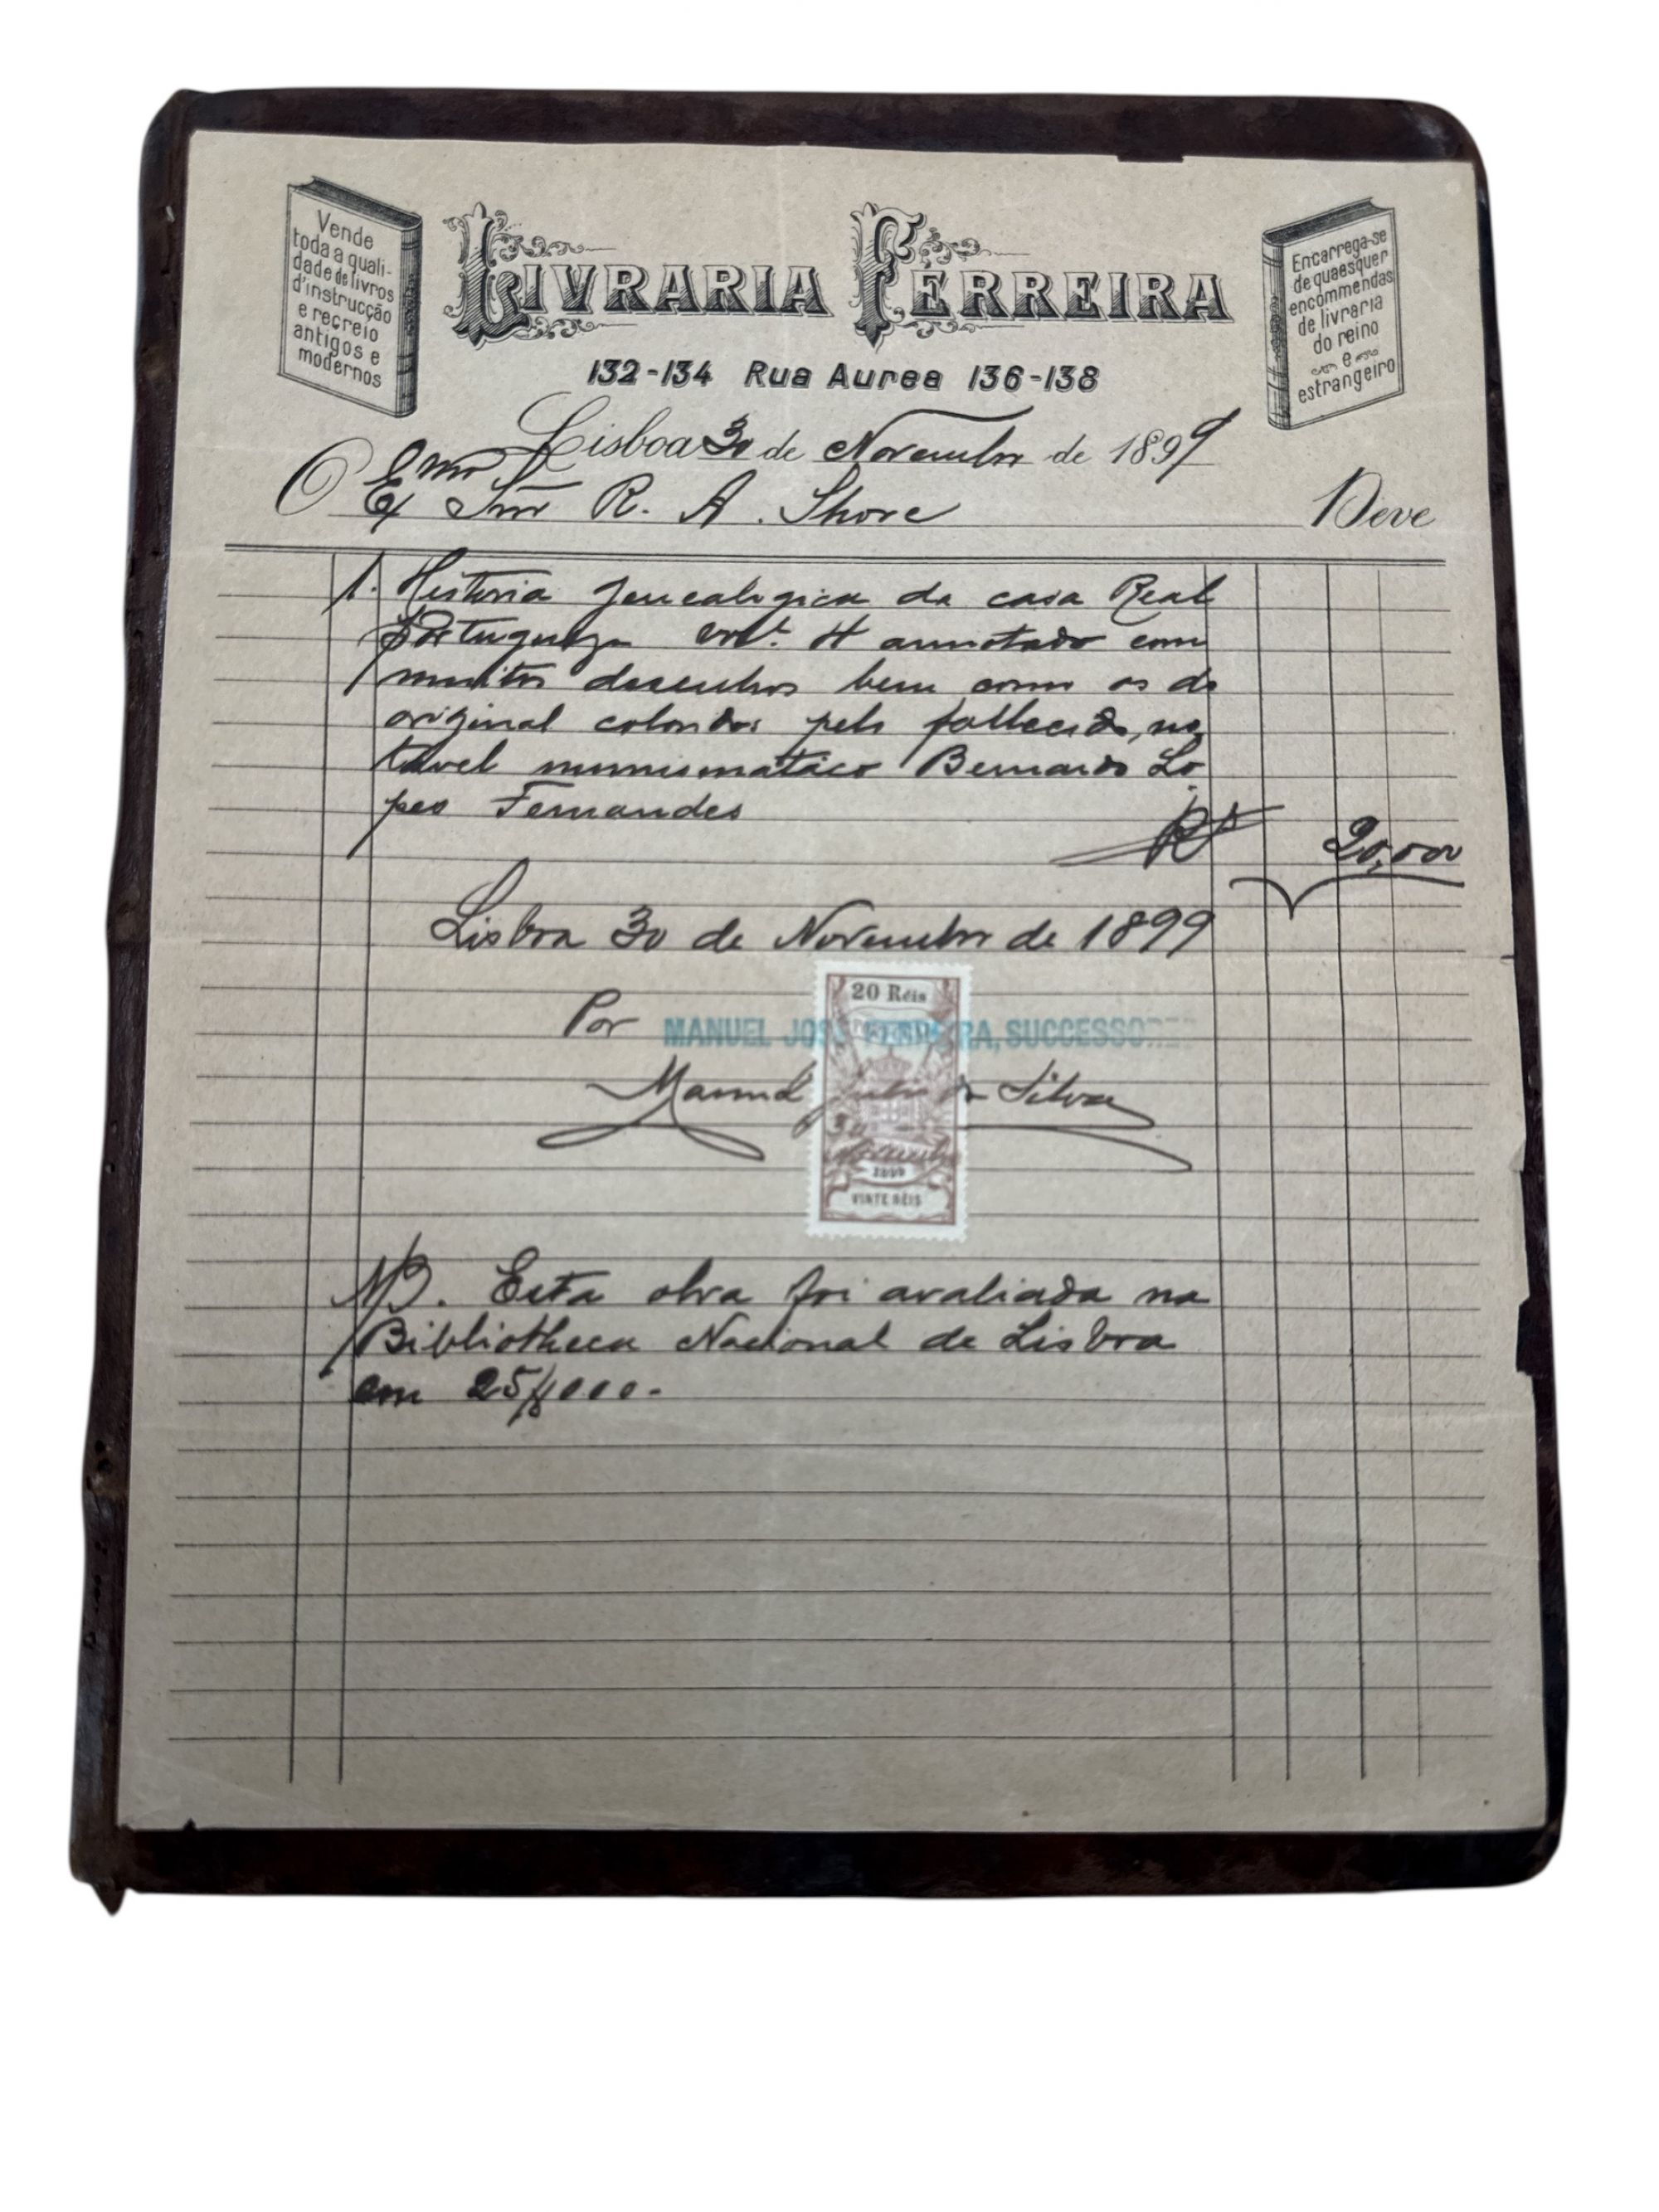 Vende
toda a quali-
dade de livros
d'instrucção
e recreio
antigos e
modernos
LIVRARIA FERREIRA
132-134 Rua Aurea 136-138
Encarrega-se
de quaesquer
encommendas
de livraria
do reino
e
estrangeiro
Lisboa 30 de Novembro de 1899
O Exmo Snr R. A. Shore Deve
1. Historia genealogica da casa Real
Portugueza vol. 4 annotado com
muitos desenhos bem como os do
original coloridos pelo fallecido, no
tavel numismatico Bernardo Lo
pes Fernandes
Rs 20,000
Lisboa 30 de Novembro de 1899
20 Réis
Por MANUEL JOSÉ FERREIRA, SUCCESSORES
Manuel Julio da Silva
30
Novembro
1899
VINTE RÉIS
NB. Esta obra foi avaliada na
Bibliotheca Nacional de Lisboa
em 25$000.